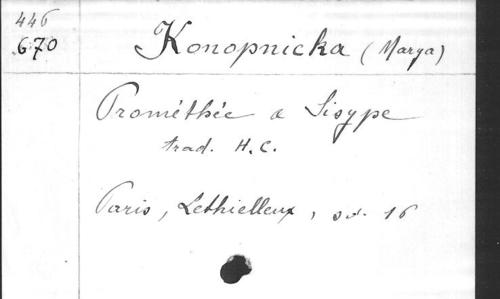 446
670
Konopnicka (Marya)
Prométhée & Sisype
trad. H.C.
Paris, Lethielleux, sd. 16